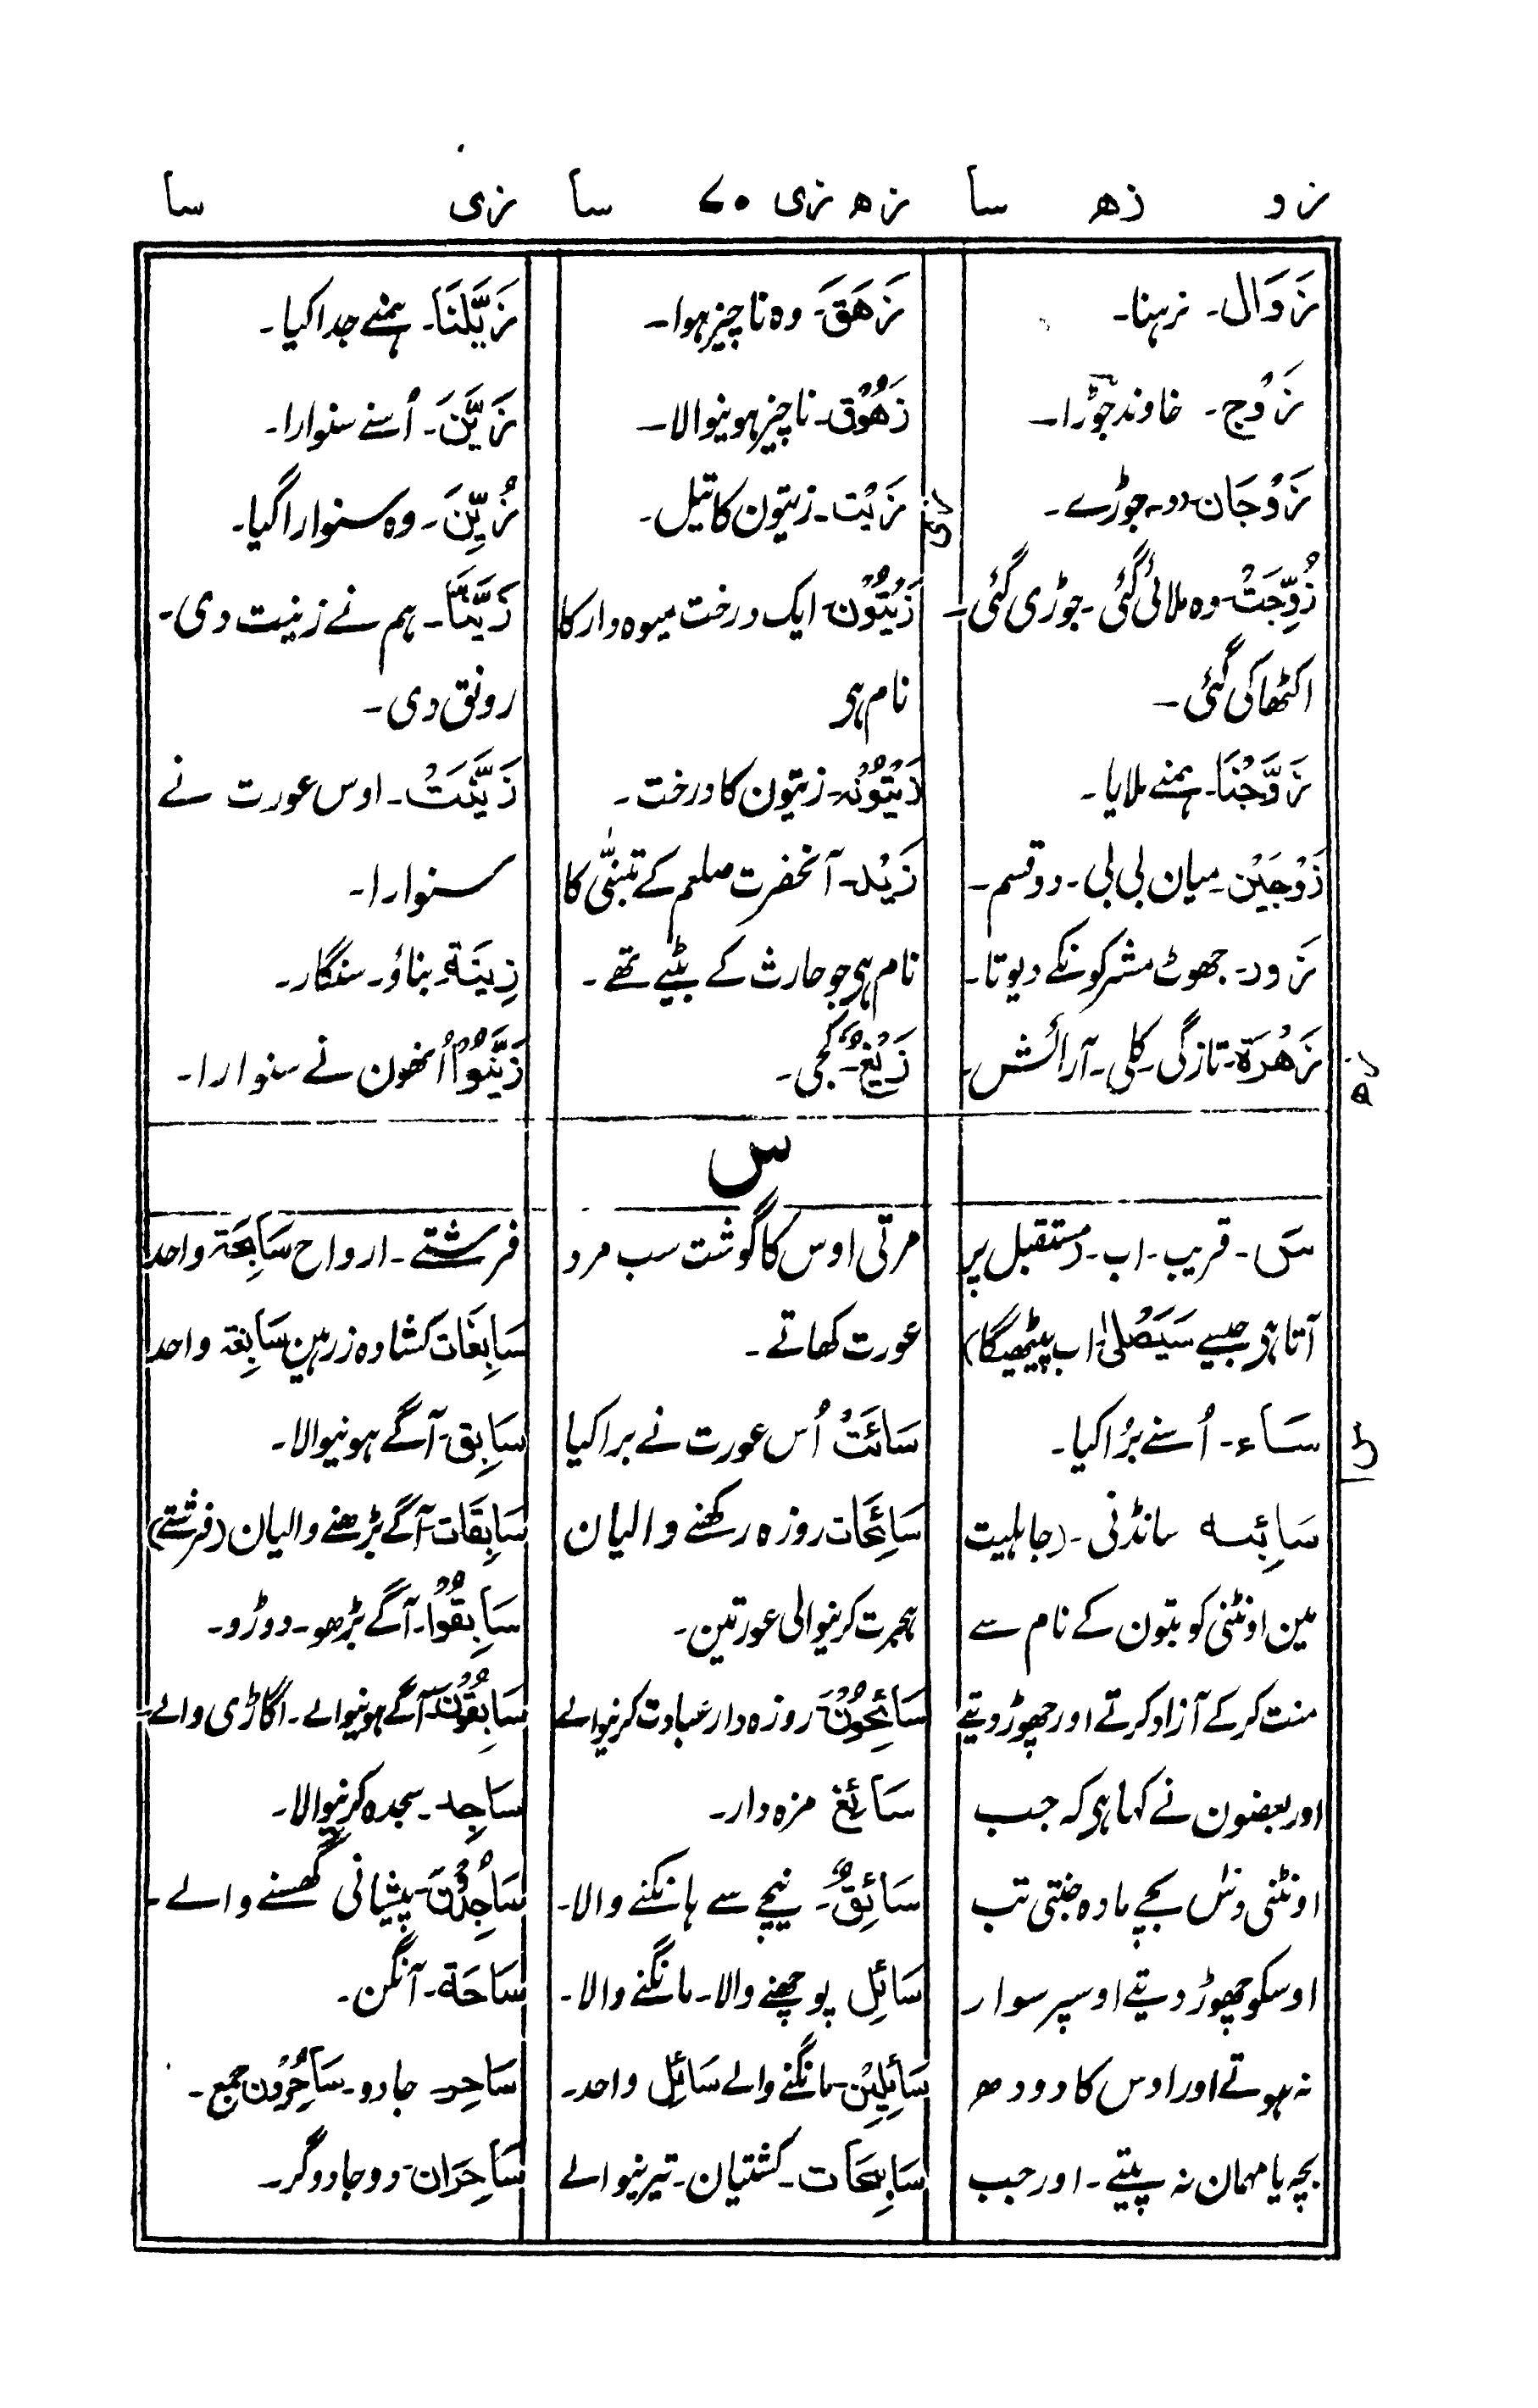 زو زھ سا زھ زی ۷۰ سا زی سا
زَوَال۔ نرہنا۔
زَوْج۔ خاوند جوڑا۔
زَوْجَان۔ دو جوڑے۔
زُوِّجَتْ۔ وہ ملائی گئی۔ جوڑی گئی۔
اکٹھا کی گئی۔
زَوَّجْنَا۔ ہمنے ملایا۔
زَوْجَیْن۔ میان بی بی۔ دو قسم۔
زور۔ جھوٹ مشرکونکے دیوتا۔
زَھْرَة۔ تازگی۔ کلی۔ آرائش۔
زھ
زَھَقَ۔ وہ ناچیز ہوا۔
زَھُوْق۔ ناچیز ہونیوالا۔
زَیْت۔ زیتون کا تیل۔
زی
زَیْتُوْن۔ ایک درخت میوہ دار کا
نام ہی
زَیْتُوْنَہ۔ زیتون کا درخت۔
زَیْد۔ آنحضرت صلعم کے تبنّٰی کا
نام ہی جو حارث کے بیٹے تھے۔
زَیْغٌ۔ کجی۔
زَیَّلْنَا۔ ہمنے جدا کیا۔
زَیَّنَ۔ اُسنے سنوارا۔
زُیِّنَ۔ وہ سنوارا گیا۔
زَیَّنَّا۔ ہم نے زینت دی۔
رونق دی۔
زَیَّنَتْ۔ اوس عورت نے
سنوارا۔
زِینَة۔ بناؤ۔ سنگار۔
زَیَّنُوْا اُنھون نے سنوارا۔
س
سَ۔ قریب۔ اب۔ (مستقبل پر
آتا ہی جیسے سَیَصْلٰی۔ اب پیٹھیگا)
سَاء۔ اُسنے بُرا کیا۔
سا
سَائِبہ سانڈنی۔ (جاہلیت
مین اونٹنی کو بتون کے نام سے
منت کر کے آزاد کرتے اور چھوڑ دیتے
اور بعضون نے کہا ہی کہ جب
اونٹنی دس بچے مادہ جنتی تب
اوسکو چھوڑ دیتے اوسپر سوار
نہ ہوتے اور اوس کا دودھ
بچہ یا مہمان نہ پیتے۔ اور جب
مرتی اوس کا گوشت سب مرد
عورت کھاتے۔
سَائَتْ اُس عورت نے برا کیا
سَائِحَات روزہ رکھنے والیان
ہجرت کرنیوالی عورتین۔
سَائِحُوْنَ روزہ دار عبادت کرنیوالے
سَائِغ مزہ دار۔
سَائِقٌ۔ نیچے سے ہانکنے والا۔
سَائِل پوچھنے والا۔ مانگنے والا۔
سَائِلِیْن۔ مانگنے والے سَائِل واحد۔
سَابِحَات۔ کشتیان۔ تیرنیوالے
فرشتے۔ ارواح سَابِحَة واحد
سَابِغَات کشادہ زرہین سَابِغَة واحد
سَابِق۔ آگے ہونیوالا۔
سَابِقَات۔ آگے بڑھنے والیان (فرشتے)
سَابِقُوْا۔ آگے بڑھو۔ دوڑو۔
سَابِقُوْنَ۔ آگے ہونیوالے۔ اگاڑی والے۔
سَاجِد۔ سجدہ کرنیوالا۔
سَاجِدُوْنَ۔ پیشانی گھسنے والے۔
سَاحَة۔ آنگن۔
سَاحِر جادو۔ سَاحِرُوْن جمع۔
سَاحِرَان۔ دو جادوگر۔